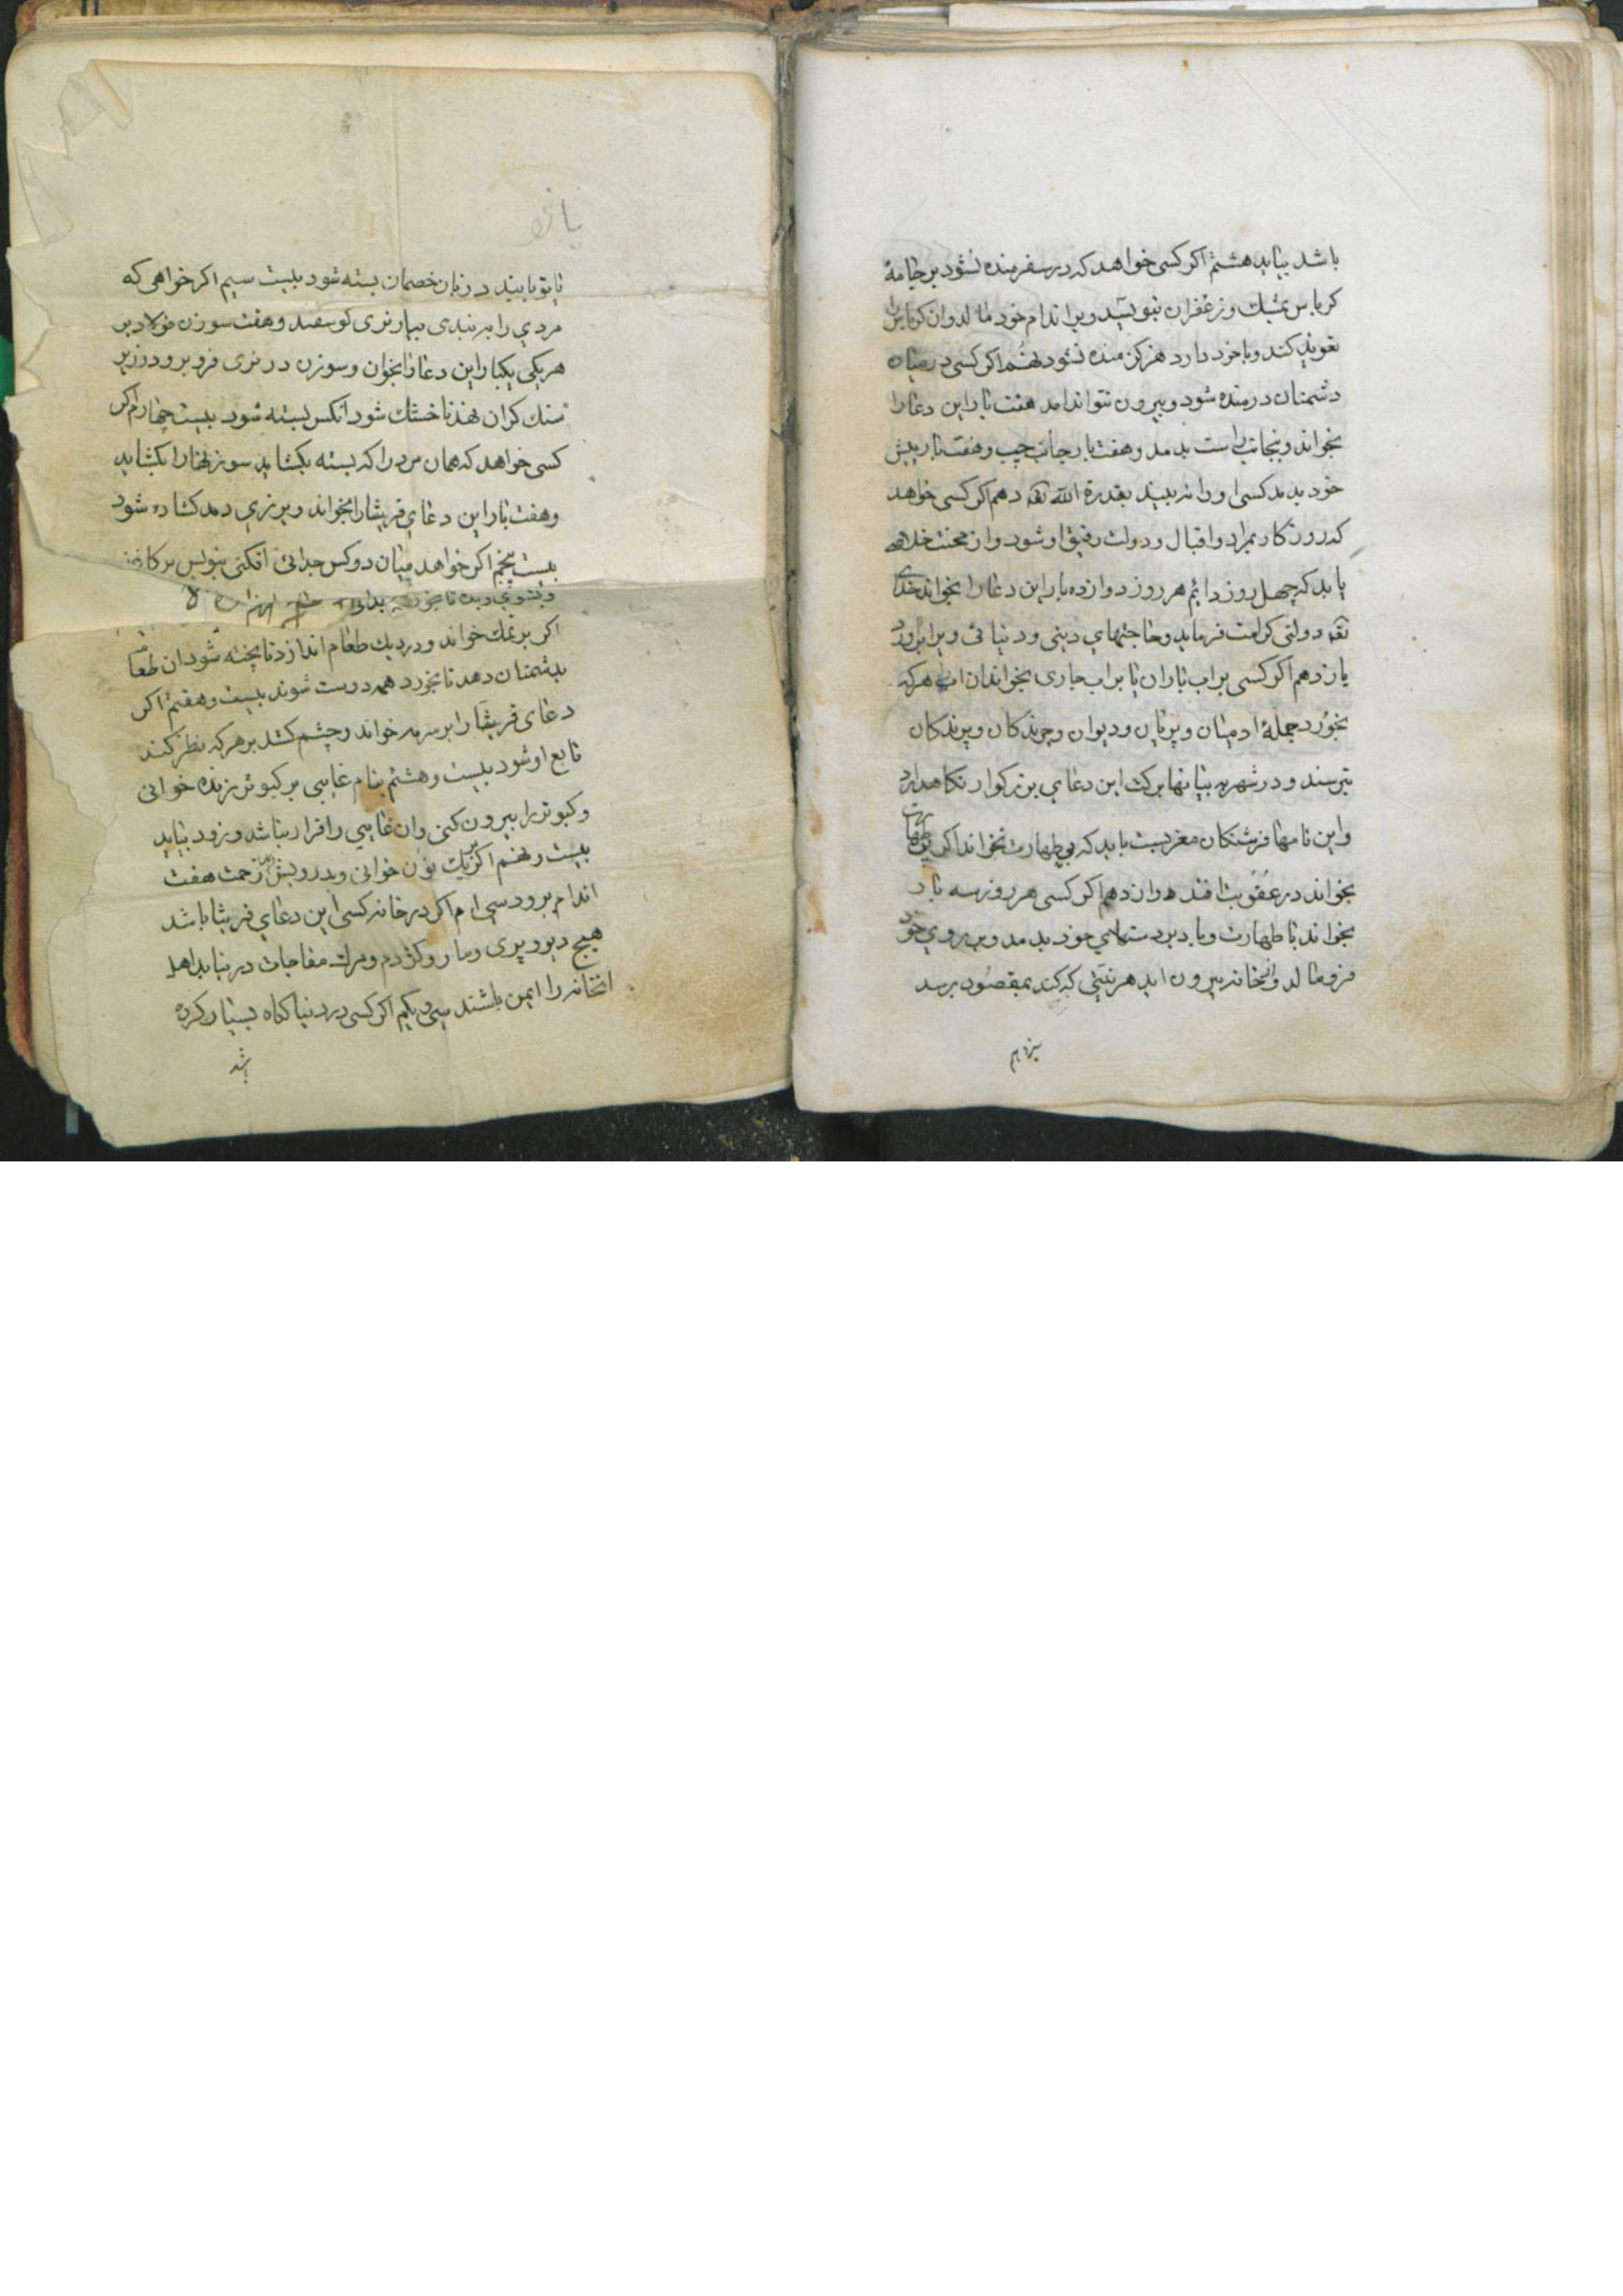 باشد بیاید هشتم اکر کسی خواهد که در سفر منده نشود بر جامهٔ
کرباس بمشک و زعفران بنویسد و بر اندام خود مالد و ان کرباس را
تعویذ کند و با خود دارد هرکز منده نشود نهم اکر کسی در میان
دشمنان درمنده شود و بیرون نتواند امد هفت بار این دعا را
بخواند و بجانب راست بدمد و هفت بار جانب چپ و هفت بار پیش
خود بدمد کسی او را نه بیند بقدرة الله تعه دهم اکر کسی خواهد
که روزکار بمراد و اقبال و دولت رفیق او شود و از محنت خلاص
یابد که چهل روز دایم هر روز دوازده بار این دعا را بخواند خدای
تعه دولتی کرامت فرماید و حاجتهای دینی و دنیائی ویرا براورد
یازدهم اکر کسی بر اب باران یا بر اب جاری بخواند ان اب هر که
بخورد جملهٔ ادمیان و پریان و دیوان و چرندکان و پرندکان
بترسند و در شهر به بیابانها برکت این دعای بزرکوار نکاهدارد
و این نامها فرشتکان مغربست باید که بی طهارت نخواند اکر بی طهارت
بخواند در عقوبت افتد دوازدهم اکر کسی هر روز سه بار
بخواند با طهارت و باد بر دستهای خود بدمد و بر روی خود
فرو مالد و از خانه بیرون اید هر نیتی که کند بمقصود برسد
سیزدهم
یانو
بسته شود بیست سیم اکر خواهی که
مردی را به بندی بیار نری کوسفند و هفت سوزن فولاد بر
هر یکی یکبار این دعا را بخوان و سوزن در نری فرو بر و در زیر
سنک کران نهد تا خشک شود انکس بسته شود بیست چهارم اکر
کسی خواهد که همان مرد را که بسته بکشاید سوزنها را بکشاید
و هفت بار این دعای قریشا را بخواند و بر نری دمد کشاده شود
بیست پنجم اکر خواهد میان دو کس جدائی افکنی بنویس بر کاغذ
اکر بر نمک خواند و در دیک طعام اندازد تا پخته شود ان طعام
بدشمنان دهد تا بخورد همه دوست شوند بیست و هفتم اکر
دعای قریشا را بر سرمه خواند و چشم کشد بر هر که نظر کند
تابع او شود بیست و هشتم بنام غایبی بر کبوتر زنده خوانی
و کبوتر را بیرون کنی و ان غایبی را قرار نباشد و زود بیاید
بیست و نهم اکر بر یک نون خوانی و بدرویش دهی زحمت هفت
اندام برود سی ام اکر در خانه کسی این دعای قریشا باشد
هیچ دیو و پری و مار و کژدم و مرک مفاجات در نیاید اهل
انخانه را ایمن باشند سی و یکم اکر کسی در دنیا کناه بسیار کرده
باشد